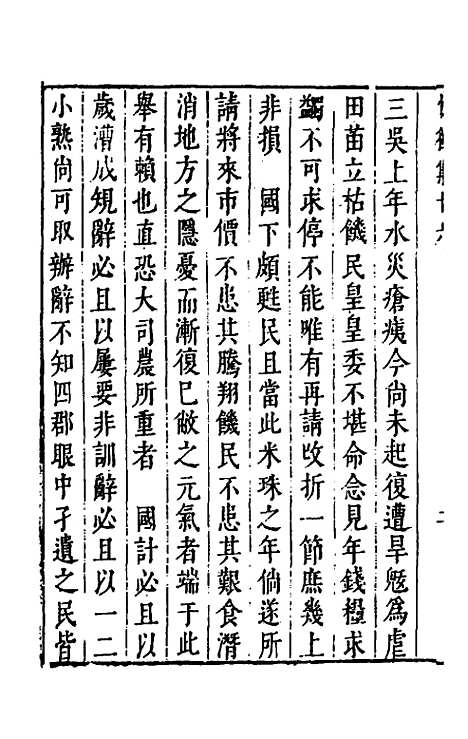 三吳上年水災瘡痍今尚未起復遭旱魃為虐
田苗立枯饑民皇皇委不堪命念見年錢糧求
蠲不可求停不能唯有再請改折一節庶幾上
非損　國下頗甦民且當此米珠之年倘遂所
請將來市價不患其騰翔饑民不患其艱食潛
消地方之隱憂而漸復已敝之元氣者端于此
舉有賴也直恐大司農所重者　國計必且以
歲漕成規辭必且以屢要非訓辭必且以一二
小熟尚可取辦辭不知四郡眼中孑遺之民皆